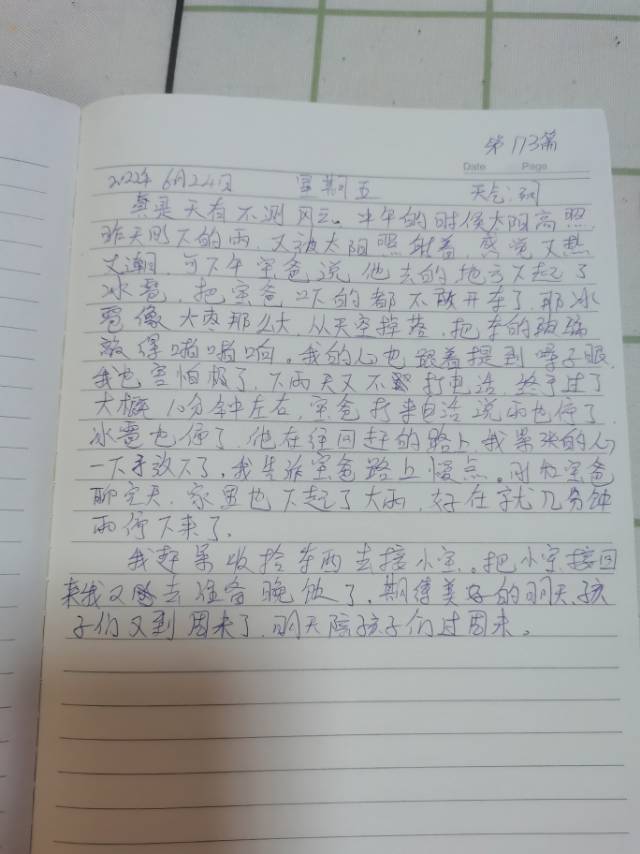 第173篇
Date Page
2022年6月24日 星期五 天气:阴
真是天有不测风云。中午的时候太阳高照
昨天刚下的雨,又被太阳照射着,感觉又热
又潮,可下午宝爸说,他去的地方下起了
冰雹,把宝爸吓的都不敢开车了,那冰
雹像大枣那么大,从天空掉落,把车的玻璃
敲得啪啪响。我的心也跟着提到嗓子眼,
我也害怕极了,下雨天又不敢打电话,终于过了
大概10分钟左右,宝爸打来电话说雨也停了
冰雹也停了,他在往回赶的路上,我紧张的心
一下子放下了,我告诉宝爸路上慢点。刚和宝爸
聊完天,家里也下起了大雨,好在就几分钟
雨停下来了。
我赶紧收拾东西去接小宝,把小宝接回
来我又去准备晚饭了,期待美好的明天,孩
子们又到周末了,明天陪孩子们过周末。